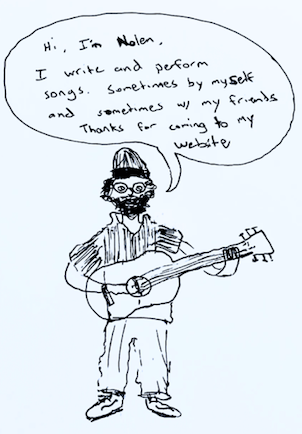 Hi, I'm Nolen,
I write and perform
songs. Sometimes by myself
and sometimes w/ my friends
Thanks for coming to my
website